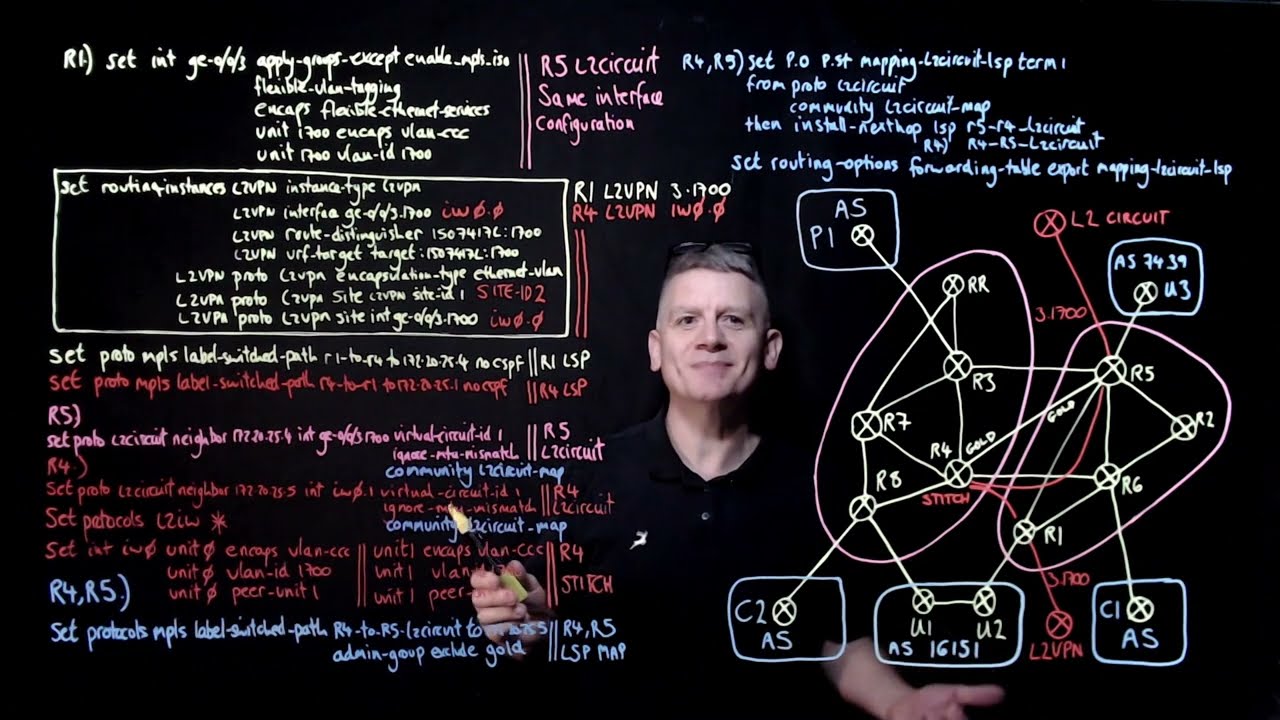 R1.) set int ge-0/0/3 apply-groups-except enable_mpls_iso
flexible-vlan-tagging
encaps flexible-ethernet-services
unit 1700 encaps vlan-ccc
unit 1700 vlan-id 1700
R5 L2circuit
Same interface
configuration
set routing-instances L2VPN instance-type l2vpn
L2VPN interface ge-0/0/3.1700 iw0.0
L2VPN route-distinguisher 15074172L:1700
L2VPN vrf-target target:15074172L:1700
L2VPN proto l2vpn encapsulation-type ethernet-vlan
L2VPN proto l2vpn site L2VPN site-id 1 SITE-ID 2
L2VPN proto l2vpn site int ge-0/0/3.1700 iw0.0
R1 L2VPN 3.1700
R4 L2VPN iw0.0
set proto mpls label-switched-path r1-to-r4 to 172.20.25.4 no cspf
R1 LSP
set proto mpls label-switched-path r4-to-r1 to 172.20.25.1 no cspf
R4 LSP
R5.)
set proto l2circuit neighbor 172.20.25.4 int ge-0/0/3.1700 virtual-circuit-id 1
ignore-mtu-mismatch
community l2circuit-map
R5
L2circuit
R4.)
set proto l2circuit neighbor 172.20.25.5 int iw0.1 virtual-circuit-id 1
ignore-mtu-mismatch
community l2circuit-map
R4
L2circuit
Set protocols l2iw *
Set int iw0 unit 0 encaps vlan-ccc
unit 0 vlan-id 1700
unit 0 peer-unit 1
unit 1 encaps vlan-ccc
unit 1
unit 1
R4
STITCH
R4,R5.)
Set protocols mpls label-switched-path R4-to-R5-l2circuit to
admin-group exclude gold
R4,R5
LSP MAP
R4,R5) set P.O P.St mapping-l2circuit-lsp term 1
from proto l2circuit
community l2circuit-map
then install-nexthop lsp r5-r4-l2circuit
R4) R4-R5-L2circuit
set routing-options forwarding-table export mapping-l2circuit-lsp
AS
P1
L2 CIRCUIT
AS 7439
U3
RR
3.1700
R3
R5
GOLD
R7
R2
R4
GOLD
R8
STITCH
R6
R1
3.1700
C2
AS
U1
U2
AS 16151
L2VPN
C1
AS